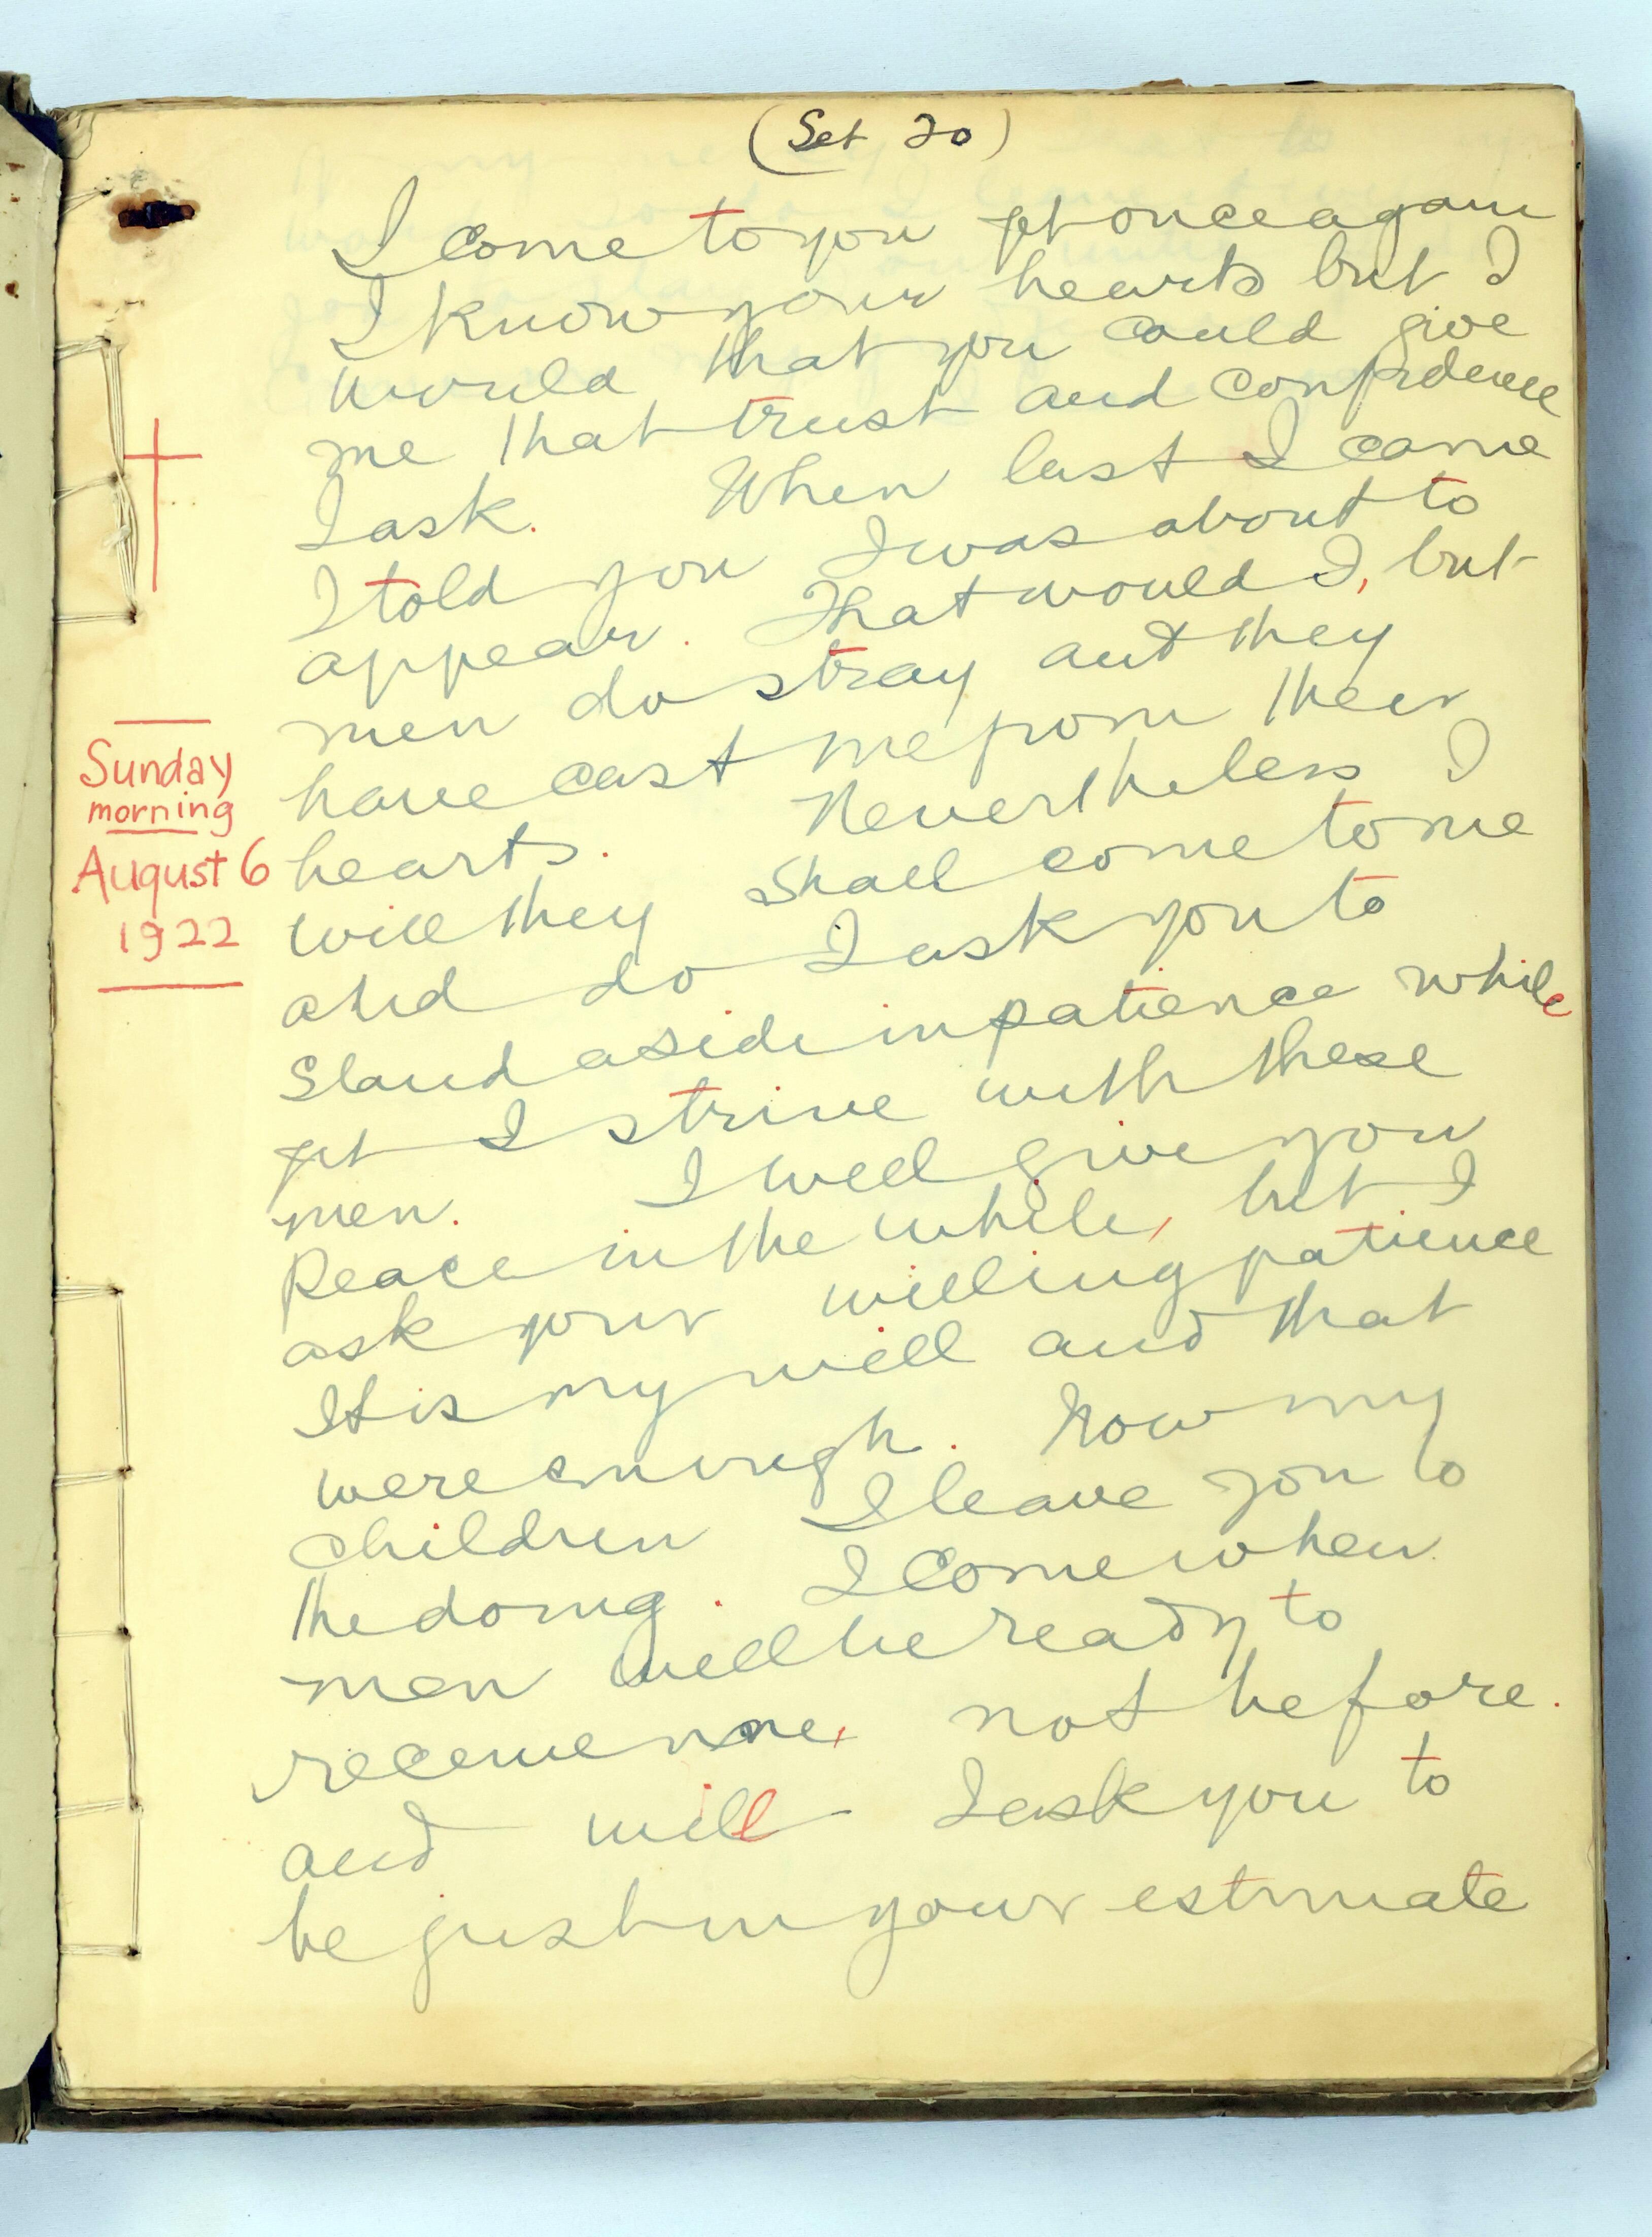 (Set 20)
I come to you yet once again
I know your hearts but I
would that you could give
me that trust and confidence
I ask. When last I came
I told you I was about to
appear. That would I, but
men do stray and they
have cast me from their
hearts. Nevertheless I
will they shall come to me
and do I ask you to
stand aside in patience while
yet I strive with these
men. I will give you
Peace in the while, but I
ask your willing patience
It is my will and that
were enough. Now my
children I leave you to
the doing. I come when
men will be ready to
receive me, not before.
and will I ask you to
be just in your estimate
Sunday
morning
August 6
1922